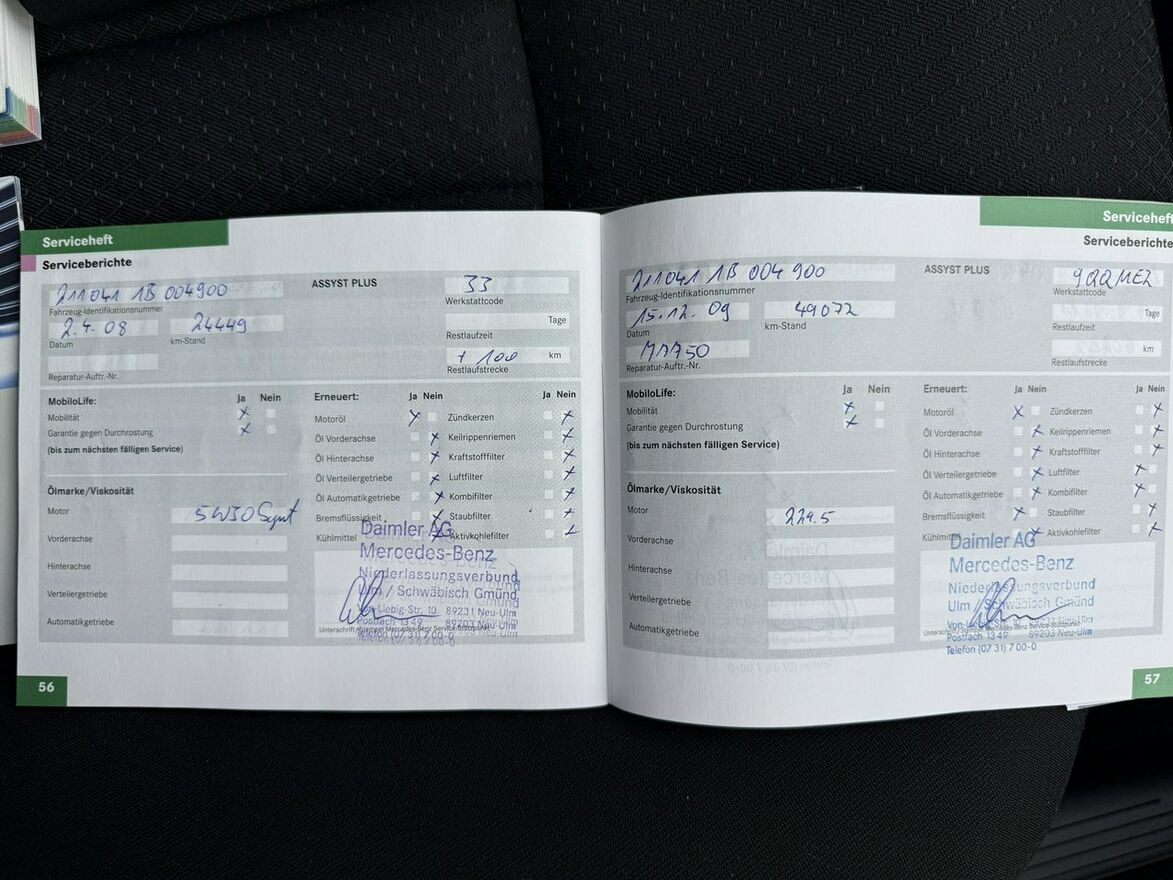 Serviceheft
Serviceberichte
211041 1B 004900
Fahrzeug-Identifikationsnummer
ASSYST PLUS
33
Werkstattcode
2.4.08
Datum
24449
km-Stand
Tage
Restlaufzeit
Reparatur-Auftr.-Nr.
+ 100 km
Restlaufstrecke
MobiloLife:
Ja Nein
Mobilität x
Garantie gegen Durchrostung x
(bis zum nächsten fälligen Service)
Erneuert:
Ja Nein
Ja Nein
Motoröl x Zündkerzen x
Öl Vorderachse x Keilrippenriemen x
Öl Hinterachse x Kraftstofffilter x
Öl Verteilergetriebe x Luftfilter x
Öl Automatikgetriebe x Kombifilter x
Bremsflüssigkeit Staubfilter x
Kühlmittel Aktivkohlefilter x
Ölmarke/Viskosität
Motor 5W30 Synt
Vorderachse
Hinterachse
Verteilergetriebe
Automatikgetriebe
Daimler AG
Mercedes-Benz
Niederlassungsverbund
Ulm / Schwäbisch Gmünd
Von-Liebig-Str. 10 89231 Neu-Ulm
Postfach 13 49 89203 Neu-Ulm
Telefon (07 31) 7 00-0
56
Serviceheft
Serviceberichte
211041 1B 004900
Fahrzeug-Identifikationsnummer
ASSYST PLUS
Werkstattcode
15.12.09
Datum
49072
km-Stand
Tage
Restlaufzeit
Reparatur-Auftr.-Nr.
km
Restlaufstrecke
MobiloLife:
Ja Nein
Mobilität x
Garantie gegen Durchrostung x
(bis zum nächsten fälligen Service)
Erneuert:
Ja Nein
Ja Nein
Motoröl x Zündkerzen x
Öl Vorderachse x Keilrippenriemen x
Öl Hinterachse x Kraftstofffilter x
Öl Verteilergetriebe x Luftfilter x
Öl Automatikgetriebe x Kombifilter x
Bremsflüssigkeit x Staubfilter x
Kühlmittel x Aktivkohlefilter x
Ölmarke/Viskosität
Motor 229.5
Vorderachse
Hinterachse
Verteilergetriebe
Automatikgetriebe
Daimler AG
Mercedes-Benz
Niederlassungsverbund
Ulm / Schwäbisch Gmünd
89231 Neu-Ulm
Postfach 13 49 89203 Neu-Ulm
Telefon (07 31) 7 00-0
57